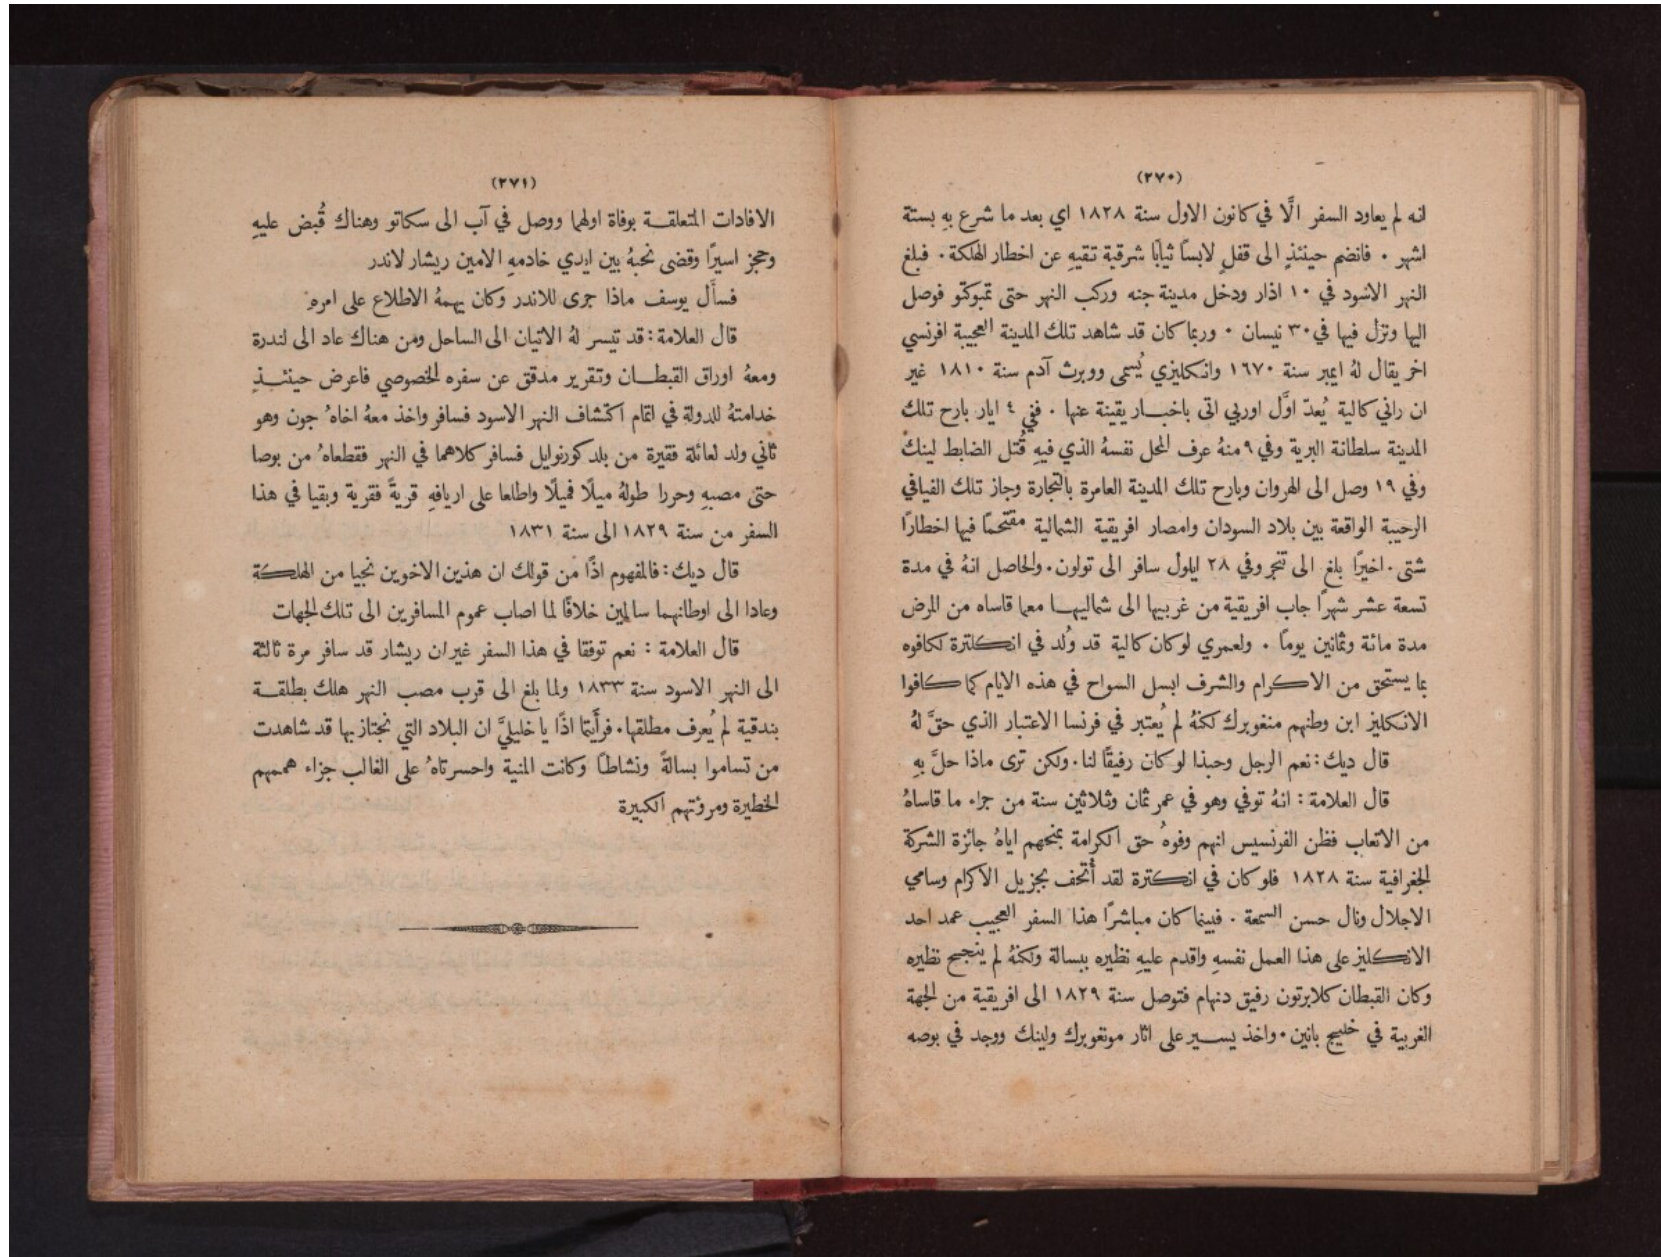 (٢٧٠)
انه لم يعاود السفر الَّا في كانون الاول سنة ١٨٢٨ اي بعد ما شرع بهِ بستة
اشهر ٠ فانضم حينئذٍ الى قفلٍ لابسًا ثيابًا شرقية تقيهِ عن اخطار الهلكة ٠ فبلغ
النهر الاسود في ١٠ اذار ودخل مدينة جنه وركب النهر حتى تمبوكتو فوصل
اليها ونزل فيها في ٣٠ نيسان ٠ وربما كان قد شاهد تلك المدينة العجيبة افرنسي
اخر يقال لهُ ايمبر سنة ١٦٧٠ وانكليزي يُسمى ووبرث آدم سنة ١٨١٠ غير
ان راني كالية يُعدّ اوَّل اوربي اتى باخبار يقينة عنها ٠ ففي ٤ ايار بارح تلك
المدينة سلطانة البرية وفي ٩ منهُ عرف المحل نفسهُ الذي فيهِ قُتل الضابط لينك
وفي ١٩ وصل الى الهروان وبارح تلك المدينة العامرة بالتجارة وجاز تلك الفيافي
الرحيبة الواقعة بين بلاد السودان وامصار افريقية الشمالية مقتحمًا فيها اخطارًا
شتى ٠ اخيرًا بلغ الى تنجر وفي ٢٨ ايلول سافر الى تولون ٠ والحاصل انهُ في مدة
تسعة عشر شهرًا جاب افريقية من غربيها الى شماليها معما قاساه من المرض
مدة مائة وثمانين يومًا ٠ ولعمري لو كان كالية قد وُلد في انكلترة لكافوه
بما يستحق من الاكرام والشرف ابسل السواح في هذه الايام كما كافوا
الانكليز ابن وطنهم منغوبرك لكنهُ لم يُعتبر في فرنسا الاعتبار الذي حقَّ لهُ
قال ديك : نعم الرجل وحبذا لو كان رفيقًا لنا ٠ ولكن ترى ماذا حلَّ بهِ
قال العلامة : انهُ توفي وهو في عمر ثمان وثلاثين سنة من جراء ما قاساهُ
من الاتعاب فظن الفرنسيس انهم وفوهُ حق الكرامة بمنحهم اياهُ جائزة الشركة
الجغرافية سنة ١٨٢٨ فلو كان في انكترة لقد أُتحف بجزيل الاكرام وسامي
الاجلال ونال حسن السمعة ٠ فبينما كان مباشرًا هذا السفر العجيب عمد احد
الانكليز على هذا العمل نفسهِ واقدم عليهِ نظيره ببسالة ولكنهُ لم ينجح نظيره
وكان القبطان كلابرتون رفيق دنهام فتوصل سنة ١٨٢٩ الى افريقية من الجهة
الغربية في خليج بانين ٠ واخذ يسير على اثار مونغوبرك ولينك ووجد في بوصه
(٢٧١)
الافادات المتعلقة بوفاة اولهما ووصل في آب الى سكاتو وهناك قُبض عليهِ
وحجز اسيرًا وقضى نحبهُ بين ايدي خادمهِ الامين ريشار لاندر
فسأَل يوسف ماذا جرى للاندر وكان يهمهُ الاطلاع على امرهِ
قال العلامة : قد تيسر لهُ الاتيان الى الساحل ومن هناك عاد الى لندرة
ومعهُ اوراق القبطان وتقرير مدقق عن سفره الخصوصي فاعرض حينئذٍ
خدامتهُ للدولة في اتمام اكتشاف النهر الاسود فسافر واخذ معهُ اخاهُ جون وهو
ثاني ولد لعائلة فقيرة من بلد كورنوايل فسافر كلاهما في النهر فقطعاهُ من بوصا
حتى مصبهِ وحررا طولهُ ميلًا فميلًا واطلعا على اريافهِ قريةً فقرية وبقيا في هذا
السفر من سنة ١٨٢٩ الى سنة ١٨٣١
قال ديك : فالمفهوم اذًا من قولك ان هذين الاخوين نجيا من الهلكة
وعادا الى اوطانهما سالمين خلافًا لما اصاب عموم المسافرين الى تلك الجهات
قال العلامة : نعم توفقا في هذا السفر غير ان ريشار قد سافر مرة ثالثة
الى النهر الاسود سنة ١٨٣٣ ولما بلغ الى قرب مصب النهر هلك بطلقة
بندقية لم يُعرف مطلقها ٠ فرأَيتما اذًا يا خليليَّ ان البلاد التي نجتاز بها قد شاهدت
من تساموا بسالةً ونشاطًا وكانت المنية واحسرتاهُ على الغالب جزاء هممهم
الخطيرة ومروَّتهم الكبيرة